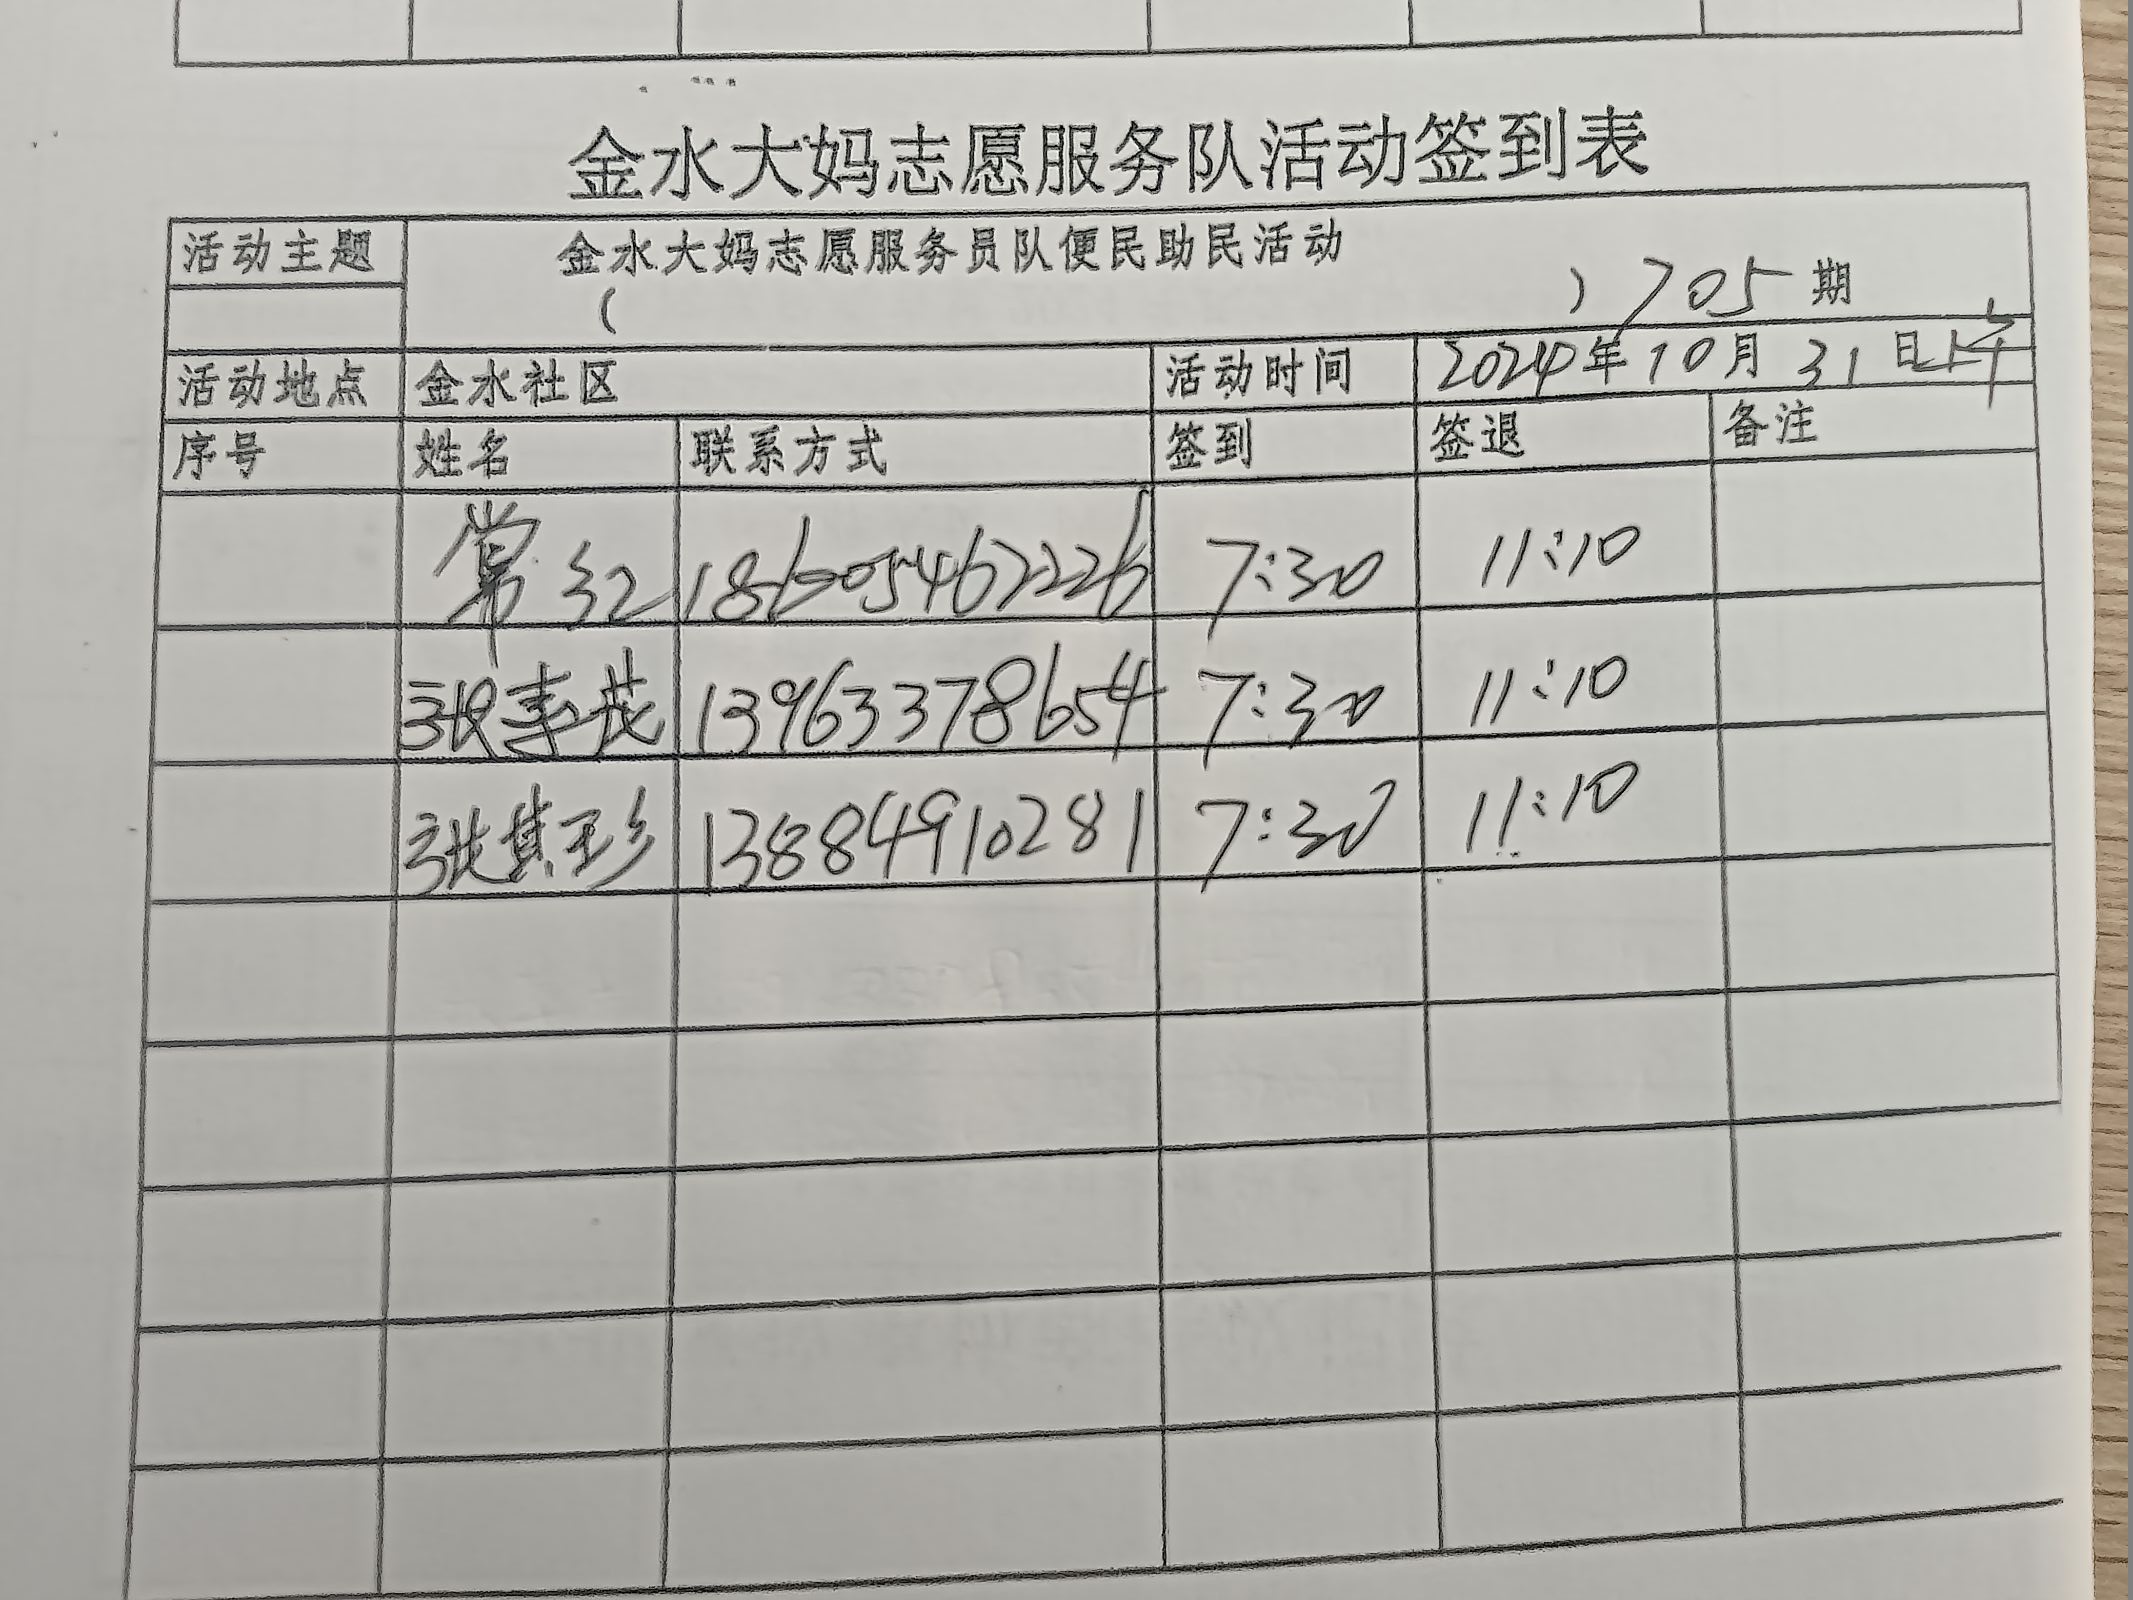 金水大妈志愿服务队活动签到表
活动主题 金水大妈志愿服务员队便民助民活动
( ) 705 期
活动地点 金水社区 活动时间 2024年10月31日上午
序号 姓名 联系方式 签到 签退 备注
常红 7:30 11:10
张 茂 13963378654 7:30 11:10
张其珍 13884910281 7:30 11:10